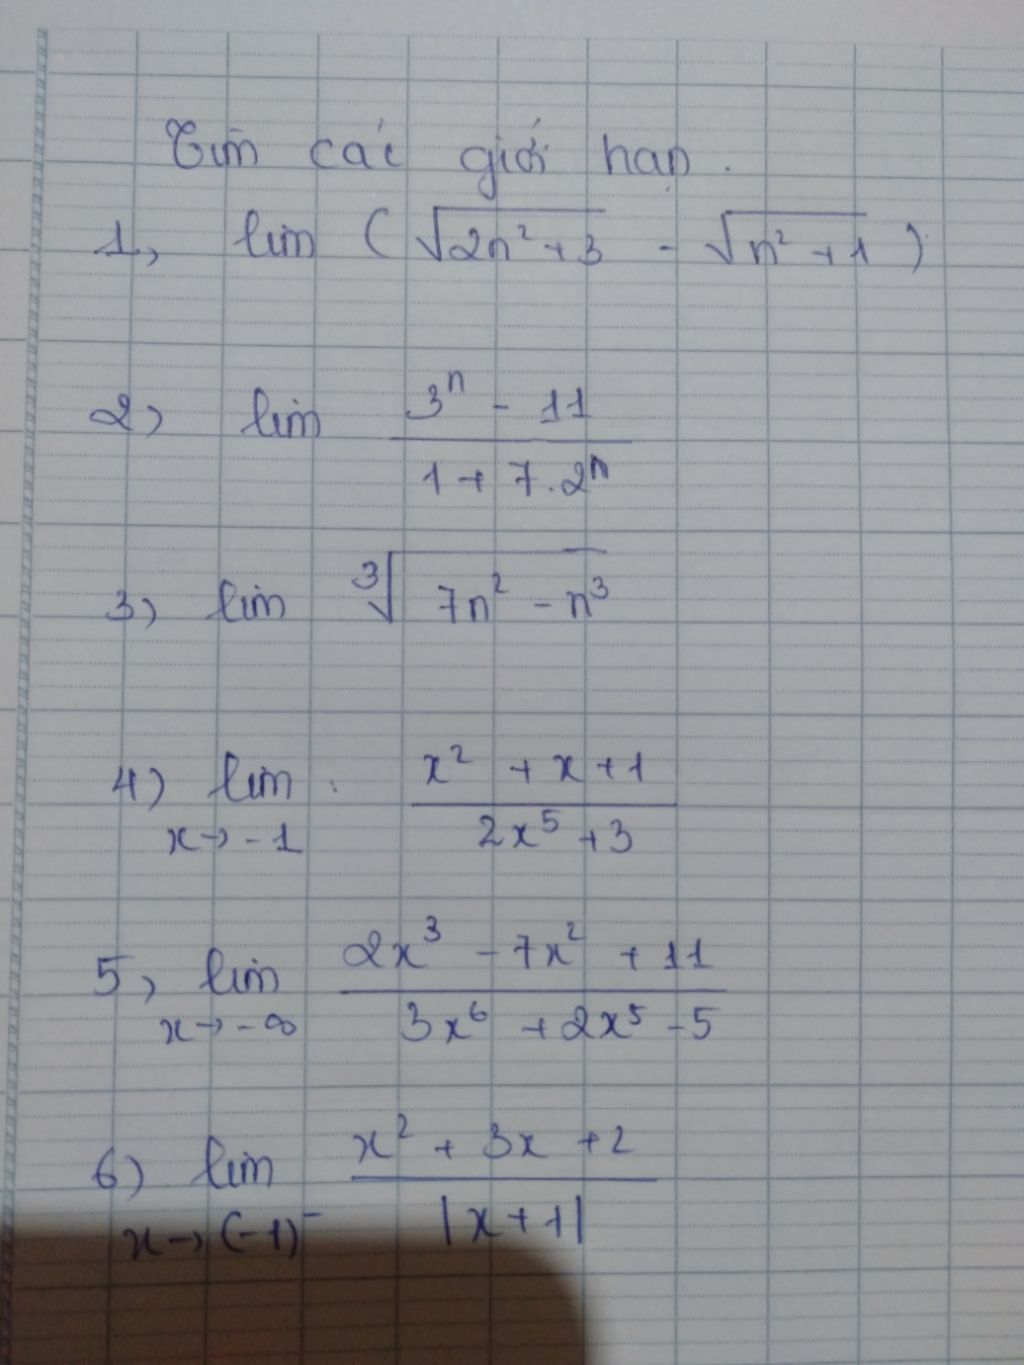 Tìm các giới hạn.
1, lim ( √(2n² + 3) - √(n² + 1) )
2) lim (3ⁿ - 11) / (1 + 7.2ⁿ)
3) lim ∛(7n² - n³)
4) lim x→-1 (x² + x + 1) / (2x⁵ + 3)
5, lim x→-∞ (2x³ - 7x² + 11) / (3x⁶ + 2x⁵ - 5)
6) lim x→(-1)⁻ (x² + 3x + 2) / |x + 1|